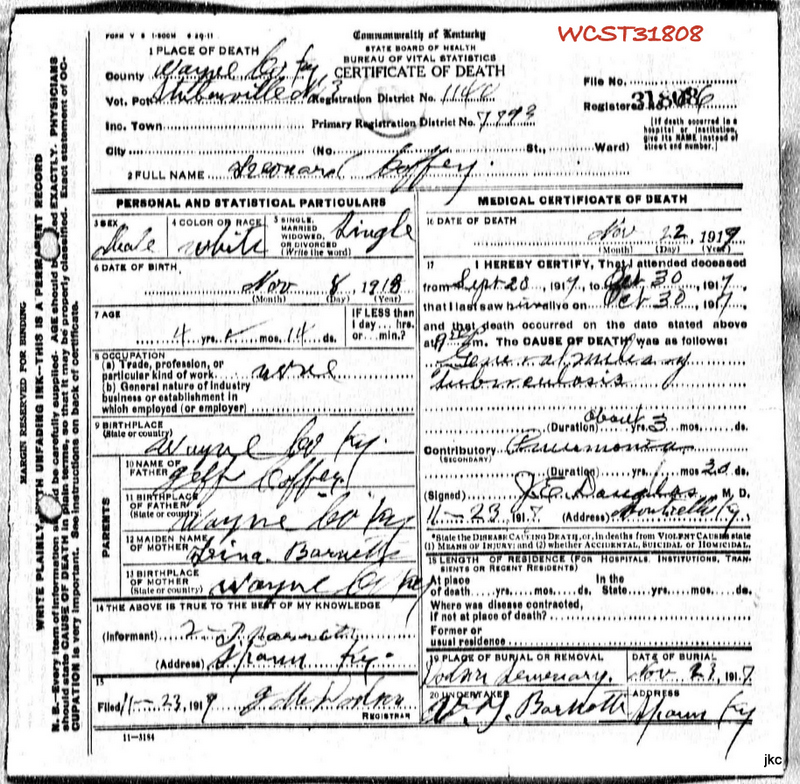 FORM V S 1-500M 6-29-11
Commonwealth of Kentucky
WCST31808
STATE BOARD OF HEALTH
BUREAU OF VITAL STATISTICS
CERTIFICATE OF DEATH
1 PLACE OF DEATH
County Wayne Co Ky
File No.
Vot. Pct. No 3 Registration District No. 1140
Registered No.
Inc. Town Primary Registration District No.
[If death occurred in a hospital or institution, give its NAME instead of street and number.]
City (No. St., Ward)
2 FULL NAME Leonard Coffey.
PERSONAL AND STATISTICAL PARTICULARS
3 SEX Male
4 COLOR OR RACE white
5 SINGLE, MARRIED WIDOWED, OR DIVORCED (Write the word) Single
6 DATE OF BIRTH
Nov 8, 191
(Month) (Day) (Year)
7 AGE
4 yrs. mos. 14 ds.
IF LESS than 1 day... hrs. or... min.?
8 OCCUPATION
(a) Trade, profession, or particular kind of work none
(b) General nature of industry business or establishment in which employed (or employer)
9 BIRTHPLACE
(State or country) Wayne Co Ky.
PARENTS
10 NAME OF FATHER Jeff Coffey
11 BIRTHPLACE OF FATHER (State or country) Wayne Co Ky
12 MAIDEN NAME OF MOTHER Barnett
13 BIRTHPLACE OF MOTHER (State or country) Wayne Co Ky
14 THE ABOVE IS TRUE TO THE BEST OF MY KNOWLEDGE
(Informant)
(Address) Spann Ky.
15
Filed 11-23, 191 Dodson
REGISTRAR
11-3184
MEDICAL CERTIFICATE OF DEATH
16 DATE OF DEATH
Nov 22, 191
(Month) (Day) (Year)
17 I HEREBY CERTIFY, That I attended deceased
from Sept 20, 1917, to Oct 30, 1917,
that I last saw h alive on Oct 30, 1917
and that death occurred on the date stated above
at m. The CAUSE OF DEATH was as follows:
Tuberculosis
about
(Duration) yrs. 3 mos. ds.
Contributory Pneumonia
(SECONDARY)
(Duration) yrs. mos. ds.
(Signed) M. D.
11-23, 1917 (Address) Monticello Ky.
*State the DISEASE CAUSING DEATH, or, in deaths from VIOLENT CAUSES state
(1) MEANS OF INJURY; and (2) whether ACCIDENTAL, SUICIDAL or HOMICIDAL.
18 LENGTH OF RESIDENCE (FOR HOSPITALS, INSTITUTIONS, TRANSIENTS OR RECENT RESIDENTS)
At place In the
of death yrs. mos. ds. State yrs. mos. ds.
Where was disease contracted,
if not at place of death?
Former or
usual residence
19 PLACE OF BURIAL OR REMOVAL
DATE OF BURIAL
Nov 23, 1917
20 UNDERTAKER
Barnett
ADDRESS
Spann Ky
MARGIN RESERVED FOR BINDING
WRITE PLAINLY WITH UNFADING INK—THIS IS A PERMANENT RECORD
N. B.—Every item of information should be carefully supplied. AGE should be stated EXACTLY. PHYSICIANS
should state CAUSE OF DEATH in plain terms, so that it may be properly classified. Exact statement of OC-
CUPATION is very important. See instructions on back of certificate.
jkc